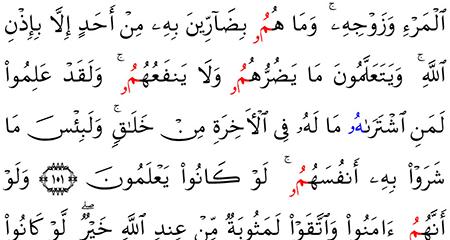 ٱلۡمَرۡءِ وَزَوۡجِهِۦۚ وَمَا هُمُۥ بِضَآرِّينَ بِهِۦ مِنۡ أَحَدٍ إِلَّا بِإِذۡنِ
ٱللَّهِۚ وَيَتَعَلَّمُونَ مَا يَضُرُّهُمُۥ وَلَا يَنفَعُهُمُۥۚ وَلَقَدۡ عَلِمُواْ
لَمَنِ ٱشۡتَرَىٰهُۥ مَا لَهُۥ فِي ٱلۡأٓخِرَةِ مِنۡ خَلَٰقٖۚ وَلَبِئۡسَ مَا
شَرَوۡاْ بِهِۦٓ أَنفُسَهُمُۥۚ لَوۡ كَانُواْ يَعۡلَمُونَ ۝١٠١ وَلَوۡ
أَنَّهُمُۥٓ ءَامَنُواْ وَٱتَّقَوۡاْ لَمَثُوبَةٞ مِّنۡ عِندِ ٱللَّهِ خَيۡرٞۖ لَّوۡ كَانُواْ